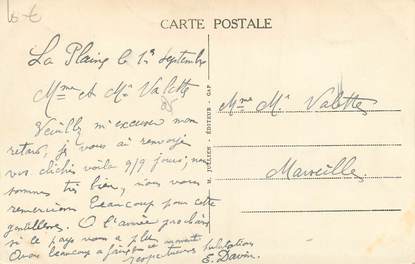 CARTE POSTALE
La Plaine le 13 Septembre
Mme et Mr Valette
Veuillez m'excuser mon
retard, je vous ai renvoyé
vos clichés voilà 8/9 jours; nous
sommes très bien, nous vous
remercions beaucoup pour cette
gentillesse. A l'année prochaine
si le pays vous a plu
respectueuses salutations
E. Davin
M. JULLIEN - ÉDITEUR - GAP
Mme Mr Valette
Marseille